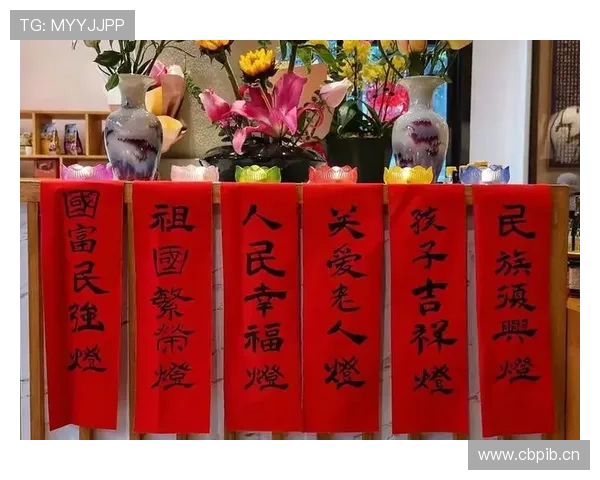 TG: MYYJJPP
國富民強燈
祖國繁榮燈
人民幸福燈
关爱老人燈
孩子吉祥燈
民族須興燈
www.cbpib.cn